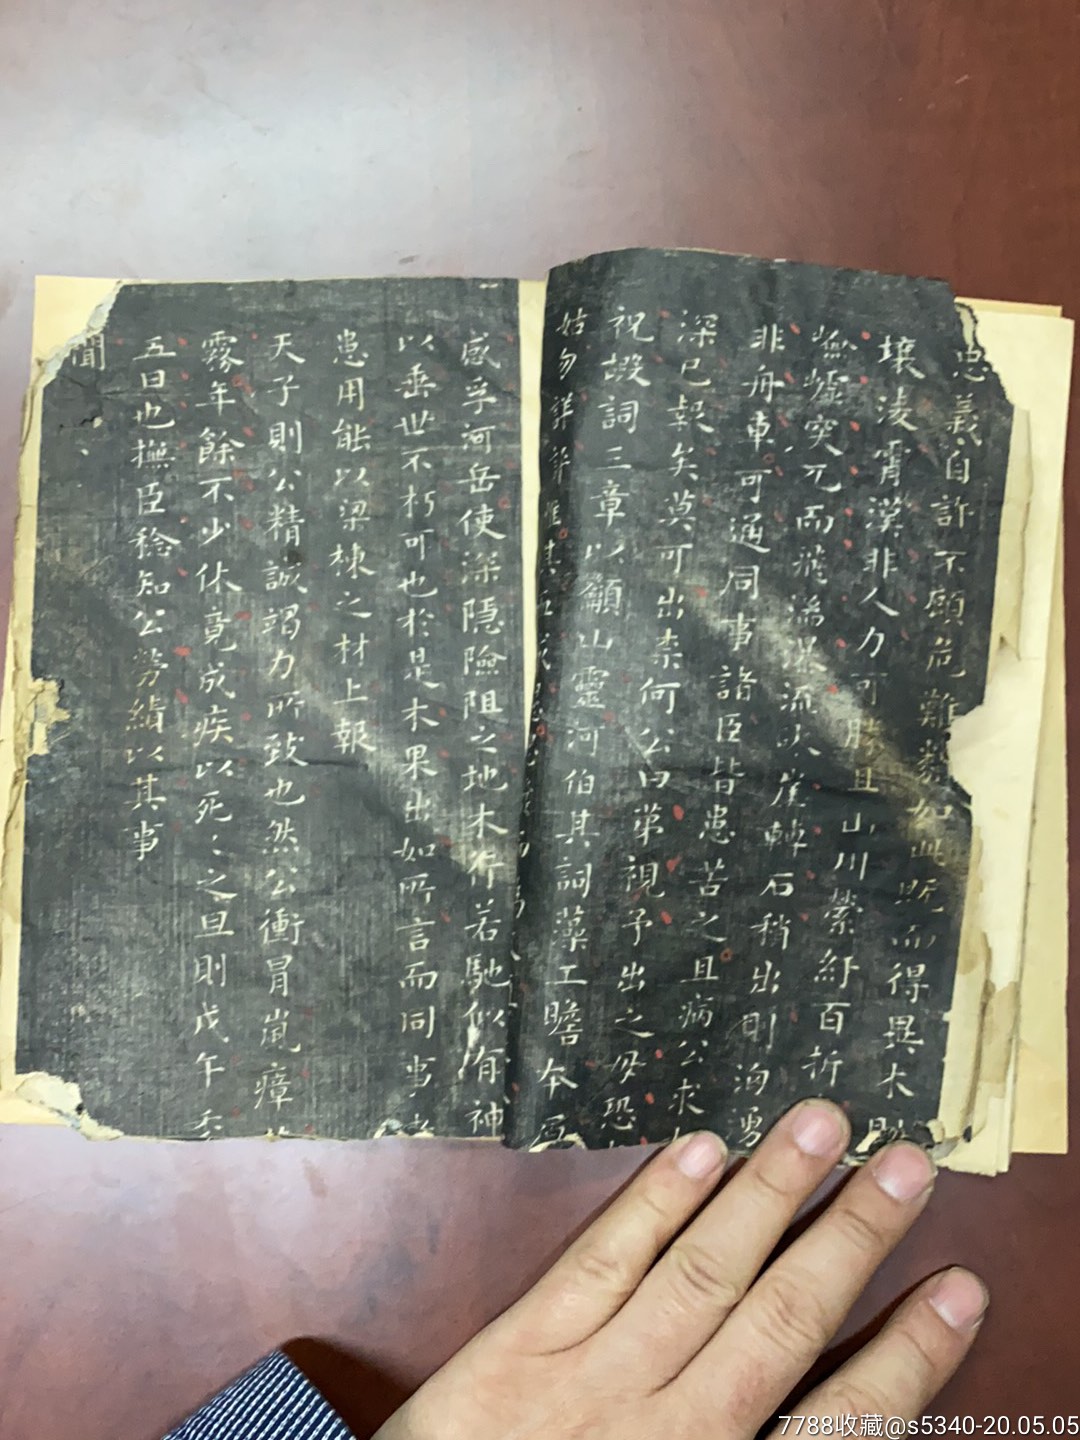 忠義自許不顧危難類如此既而得異木
壤淩霄漢非人力可勝且山川縈紆百折
巇嶟突兀而飛湍瀑流汰崖轉石稍出則洶湧
非舟車可通同事諸臣皆患苦之且病公求
深已報矣莫可出柰何公曰第視予出之毋恐
祝嘏詞三章以籲山靈河伯其詞藻工瞻本
姑勿詳
感孚河岳使深隱險阻之地木行若馳似有神
以垂世不朽可也於是木果出如所言而同
患用能以梁棟之材上報
天子則公精誠竭力所致也然公衝冒嵐瘴
霧年餘不少休竟成疾以死〻之旦則戊午
五日也撫臣稔知公勞績以其事
聞
7788收藏@s5340-20.05.05